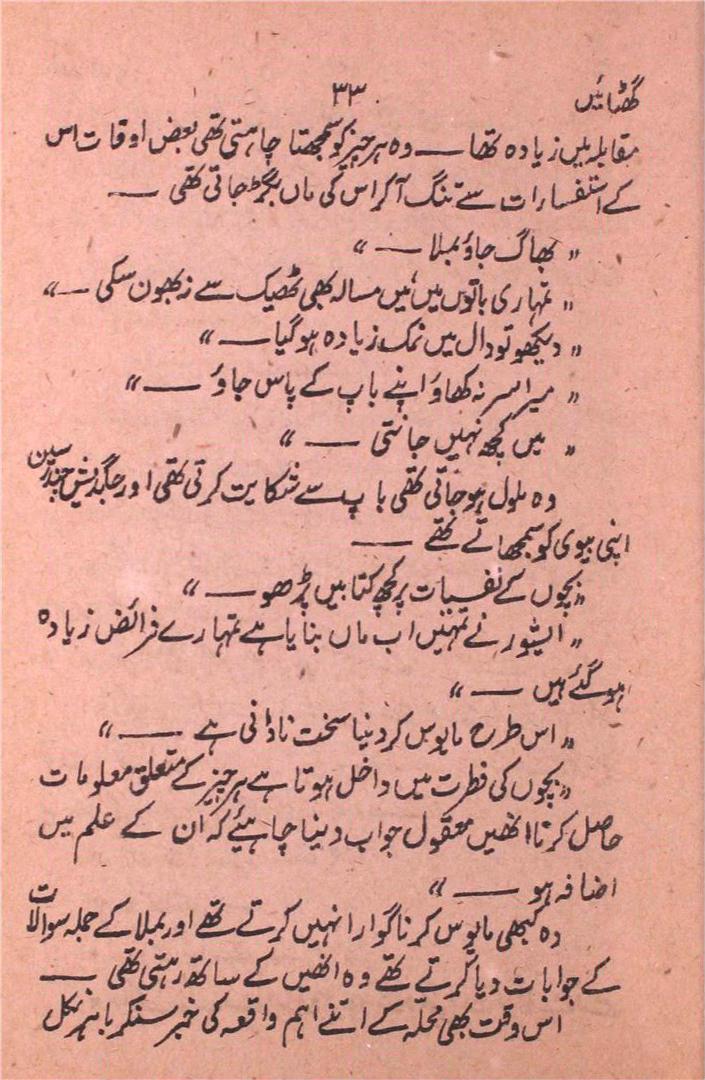 گھٹائیں ۳۳
مقابلہ میں زیادہ تھا — وہ ہر چیز کو سمجھنا چاہتی تھی بعض اوقات اس
کے استفسارات سے تنگ آکر اس کی ماں بگڑ جاتی تھی —
"بھاگ جاؤ بملا —"
"تمہاری باتوں میں، میں مسالہ بھی ٹھیک سے نہ بھون سکی —"
"دیکھو تو دال میں نمک زیادہ ہوگیا —"
"میرا سر نہ کھاؤ اپنے باپ کے پاس جاؤ —"
"میں کچھ نہیں جانتی —"
وہ ملول ہو جاتی تھی باپ سے شکایت کرتی تھی اور جگدیش چندر سین
اپنی بیوی کو سمجھاتے تھے —
"بچوں کے نفسیات پر کچھ کتابیں پڑھو —"
"ایشور نے تمہیں اب ماں بنایا ہے تمہارے فرائض زیادہ
ہوگئے ہیں —"
"اس طرح مایوس کر دینا سخت نادانی ہے —"
"بچوں کی فطرت میں داخل ہوتا ہے ہر چیز کے متعلق معلومات
حاصل کرنا انھیں معقول جواب دینا چاہیئے کہ ان کے علم میں
اضافہ ہو —"
وہ کبھی مایوس کرنا گوارا نہیں کرتے تھے اور بملا کے جملہ سوالات
کے جوابات دیا کرتے تھے وہ انھیں کے ساتھ رہتی تھی —
اس وقت بھی محلّہ کے اتنے اہم واقعہ کی خبر سنکر باہر نکل